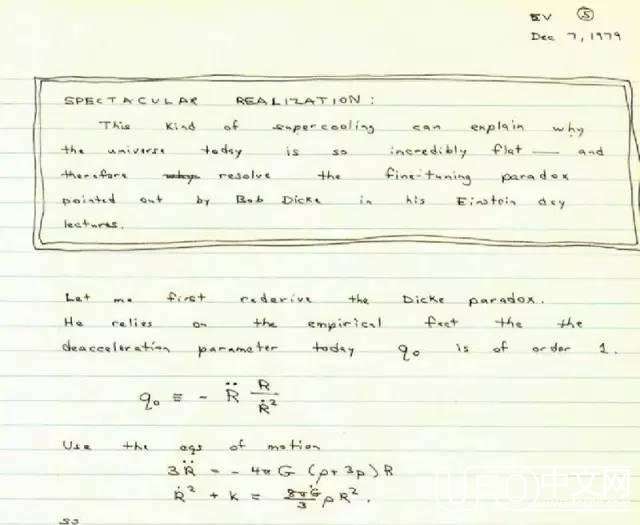 EV ⑤
Dec 7, 1979
SPECTACULAR REALIZATION:
This kind of supercooling can explain why
the universe today is so incredibly flat — and
therefore resolve the fine-tuning paradox
pointed out by Bob Dicke in his Einstein day
lectures.
Let me first rederive the Dicke paradox.
He relies on the empirical fact the the
deacceleration parameter today q₀ is of order 1.
q₀ ≡ - R̈ R/Ṙ²
Use the eqs of motion
3R̈ = - 4π G (ρ + 3p) R
Ṙ² + k = 8πG/3 ρ R².
so
中文网